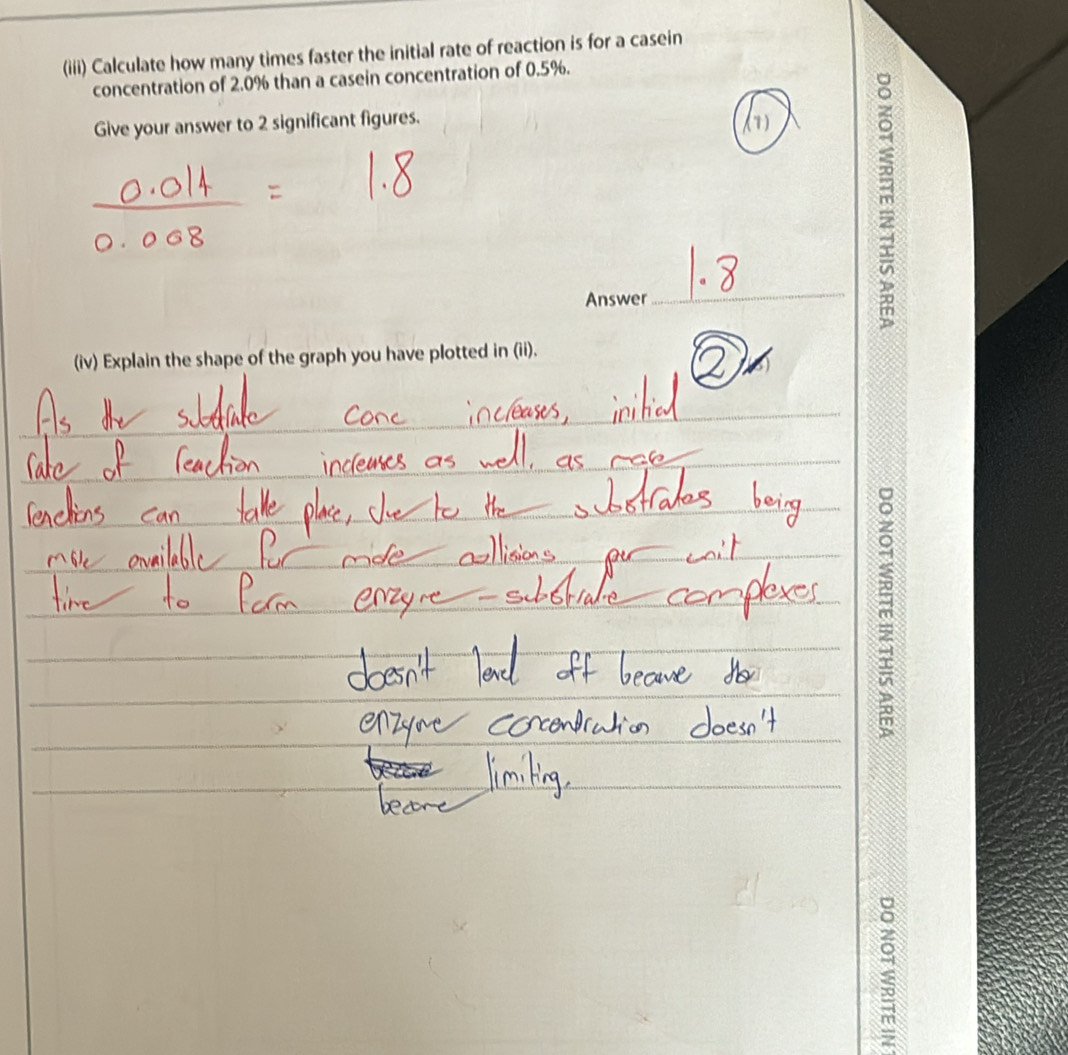 (iii) Calculate how many times faster the initial rate of reaction is for a casein
concentration of 2.0% than a casein concentration of 0.5%.
Give your answer to 2 significant figures.
(1)
0.014 = 1.8
0.008
Answer 1.8
(iv) Explain the shape of the graph you have plotted in (ii).
2
As the substrate conc increases, initial
rate of reaction increases as well, as more
reactions can take place, due to the substrates being
more available for more collisions per unit
time to form enzyme-substrate complexes
doesn't level off because the
enzyme concentration doesn't
limiting.
become
DO NOT WRITE IN THIS AREA
DO NOT WRITE IN THIS AREA
DO NOT WRITE IN